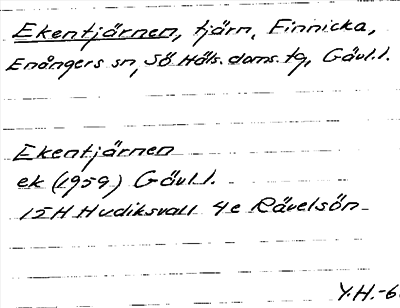 Ekentjärnen, tjärn, Finnicka,
Enångers sn, Sö Häls. doms. tg, Gävl. l.
Ekentjärnen
ek (1959) Gävl. l.
15H Hudiksvall 4e Rävelsön
Y.H.-6